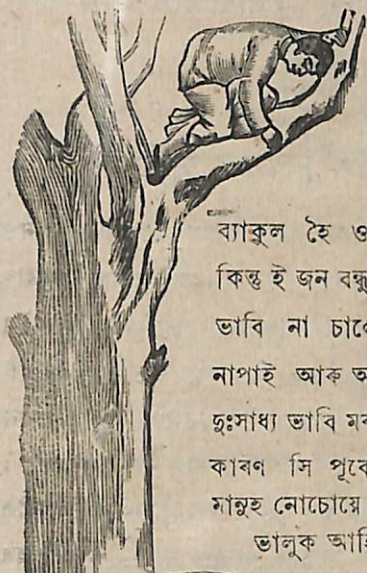 ব্যাকুল হৈ ও
কিন্তু ই জন বন্ধু
ভাবি না চাণে
নাপাই আৰু অ
দুঃসাধ্য ভাবি মৰ
কাৰণ সি পূৰ্বে
মানুহ নোচোয়ে
ভালুক আহি